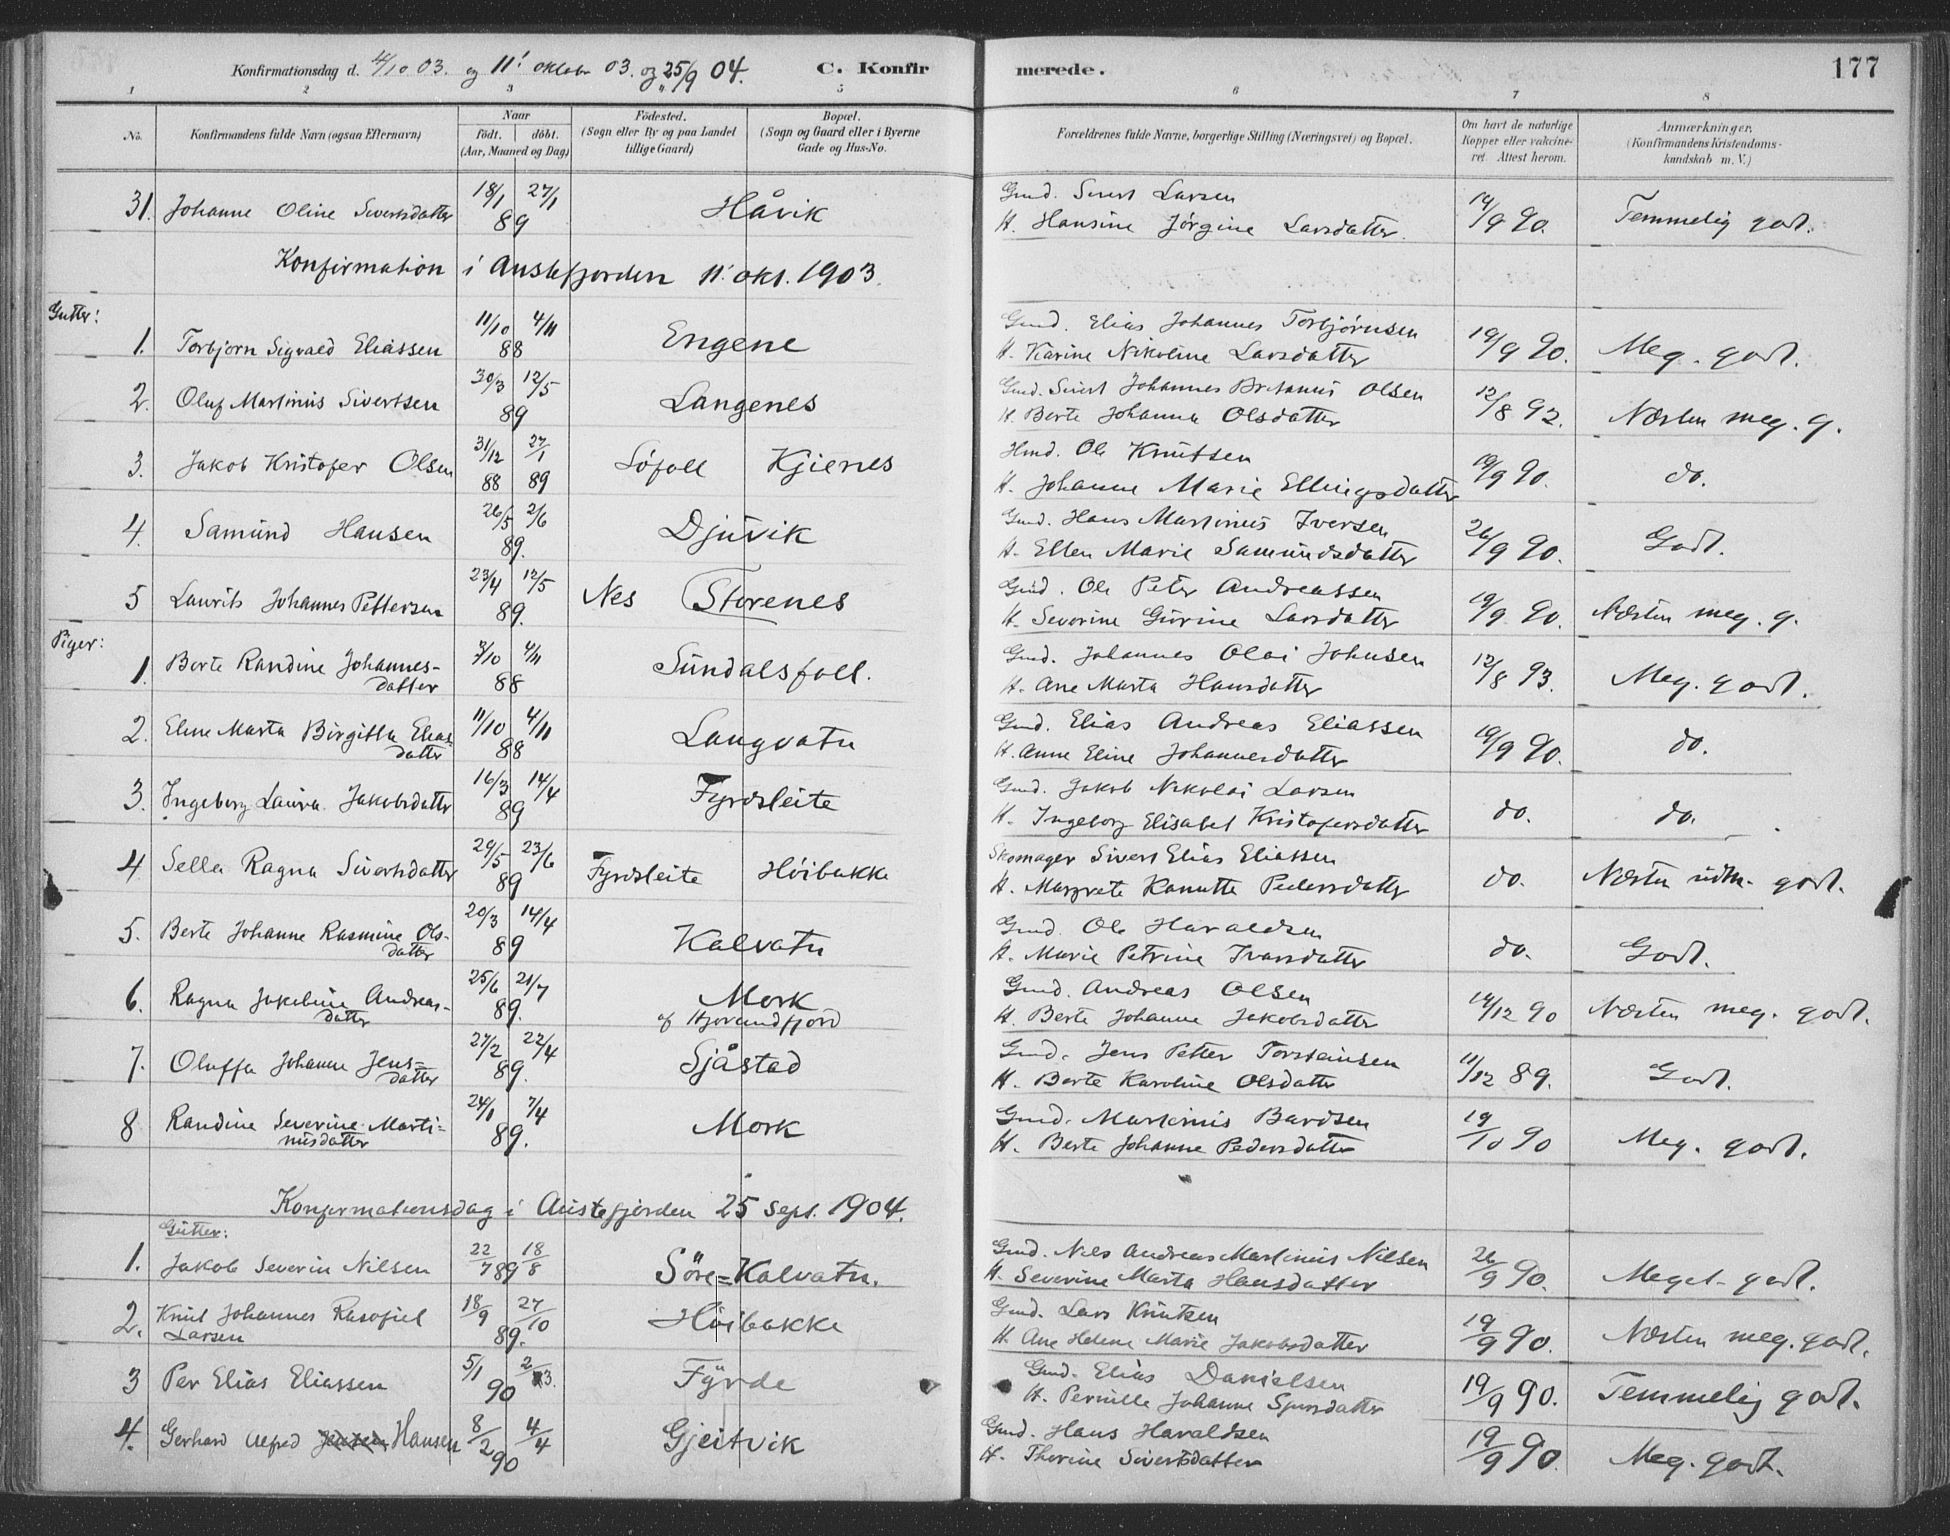 Konfirmationsdag d. 4/10 03. og 11' oktober 03. og 25/9 04. C. Konfirmerede. 177
1 2 3 4 5 6 7 8
No. Konfirmandens fulde Navn (ogsaa Efternavn) Naar födt. döbt. (Aar, Maaned og Dag) Födested. (Sogn eller By og paa Landet tillige Gaard) Bopæl. (Sogn og Gaard eller i Byerne Gade og Hus-No. Forældrenes fulde Navne, borgerlige Stilling (Næringsvei) og Bopæl. Om havt de naturlige Kopper eller vakcineret. Attest herom. Anmærkninger. (Konfirmandens Kristendomskundskab m. V.)
31. Johanne Oline Sivertsdatter 18/1 27/1 89 Håvik Gmd. Sivert Larsen H. Hansine Jørgine Larsdatter. 14/9 90. Temmelig godt.
Konfirmation i Austefjorden 11' okt. 1903.
Gutter:
1. Torbjørn Sigvald Eliassen 11/10 4/11 88 Engene Gmd. Elias Johannes Torbjørnsen H. Karine Nikoline Larsdatter 19/9 90. Meg. godt.
2. Oluf Martinus Sivertsen 30/3 12/5 89 Langenes Gmd. Sivert Johannes Britanus Olsen H. Berte Johanna Olsdatter 12/8 92. Næsten meg. g.
3. Jakob Kristofer Olsen 31/12 88 27/1 89 Löfoll Kjienes Hmd. Ole Knutsen H. Johanne Marie Ellingsdatter 19/9 90. do.
4. Samund Hansen 26/5 2/6 89. Djuvik Gmd. Hans Martinus Iversen H. Ellen Marie Samundsdatter 26/9 90. Godt.
5 Laurits Johannes Pettersen 23/4 12/5 89. Nes Storenes Gmd. Ole Peter Andreassen H. Severine Gurine Larsdatter 19/9 90. Næsten meg. g.
Piger:
1. Berte Randine Johannesdatter 3/10 4/11 88 Sundalsfoll. Gmd. Johannes Olai Johnsen H. Ane Marta Hansdatter 12/8 93. Meg. godt.
2. Eline Marta Birgitta Eliasdatter 11/10 4/11 88 Langvatn Gmd. Elias Andreas Eliassen H. Anne Eline Johannesdatter 19/9 90. do.
3. Ingeborg Laura Jakobsdatter 16/3 14/4 89 Fyrdsleite Gmd. Jakob Nikolai Larsen H. Ingeborg Elisabet Kristofersdatter do. do.
4 Sella Ragna Sivertsdatter 29/5 23/6 89 Fyrdsleite Høibakke Skomager Sivert Elias Eliassen H. Margrete Kanutte Pedersdatter do. Næsten udm. godt.
5. Berte Johanne Rasmine Olsdatter 20/3 14/4 89 Kalvatn Gmd. Ole Haraldsen H. Marie Petrine Ivarsdatter do. Godt.
6. Ragna Jakobine Andreasdatter 25/6 21/7 89. Mork af Hjorundfjord Gmd. Andreas Olsen H. Berte Johanne Jakobsdatter 14/12 90 Næsten meg. godt.
7. Oluffa Johanne Jensdatter 27/2 22/4 89. Sjåstad Gmd. Jens Petter Torsteinsen H. Berte Karoline Olsdatter 11/12 89. Godt.
8 Randine Severine Martinusdatter 24/1 7/4 89. Mork Gmd. Martinus Bardsen H. Berte Johanne Pedersdatter 19/10 90 Meg. godt.
Konfirmationsdag i Austefjorden 25 Sept. 1904.
Gutter:
1. Jakob Severin Nilsen 22/7 89 18/8 Söre-Kalvatn. Gmd. Nils Andreas Martinus Nilsen H. Severine Marta Hansdatter 26/9 90. Meget godt.
2. Knut Johannes Rasofiel Larsen 18/9 27/10 89. Höibakke Gmd. Lars Knutsen H. Ane Helene Marie Jakobsdatter 19/9 90. Næsten meg. godt.
3 Per Elias Eliassen 5/1 2/3. 90 Fyrde Gmd. Elias Danielsen H. Pernille Johanne Sjursdatter 19/9 90. Temmelig godt.
4. Gerhard Alfred Hansen 8/2 4/4 90 Gjeitvik Gmd. Hans Haraldsen H. Thorine Sivertsdatter 19/9 90. Meg. godt.